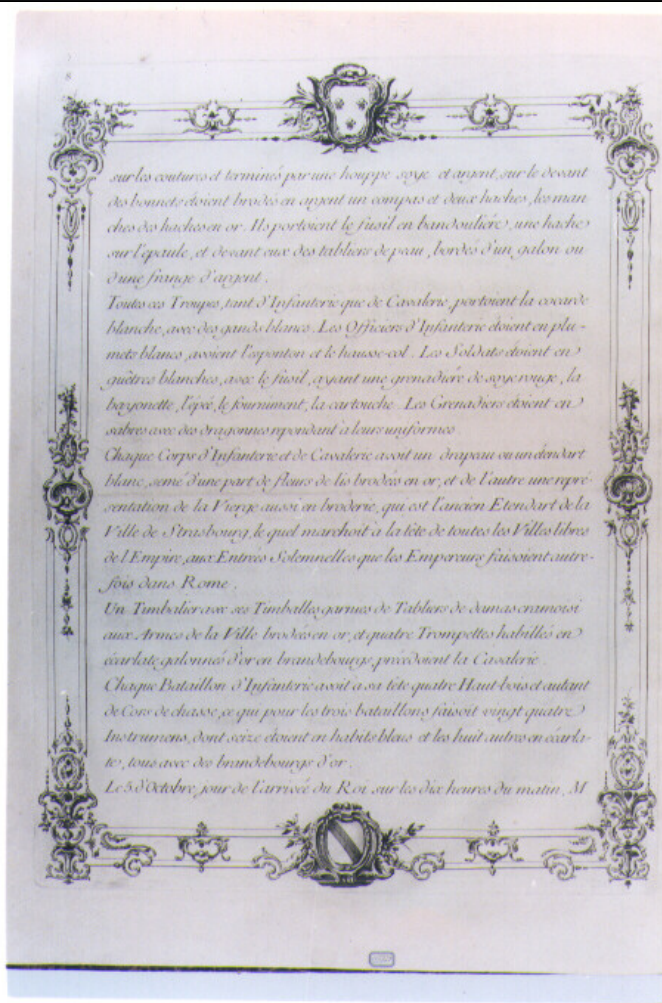 8
sur les coutures et terminés par une houppe soye et argent, sur le devant
des bonnets étoient brodés en argent un compas et deux haches, les man
ches des haches en or. Ils portoient le fusil en bandouliére, une hache
sur l'épaule, et devant eux des tabliers de peau, bordés d'un galon ou
d'une frange d'argent.
Toutes ces Troupes, tant d'Infanterie que de Cavalerie, portoient la cocarde
blanche, avec des gands blancs. Les Officiers d'Infanterie étoient en plu-
mets blancs, avoient l'esponton et le hausse-col. Les Soldats étoient en
guêtres blanches, avec le fusil, ayant une grenadiére de soye rouge, la
bayonette, l'épée, le fourniment, la cartouche. Les Grenadiers étoient en
sabres avec des dragonnes repondant à leurs uniformes.
Chaque Corps d'Infanterie et de Cavalerie avoit un drapeau ou un étendart
blanc, semé d'une part de fleurs de lis brodées en or, et de l'autre une repré-
sentation de la Vierge aussi en broderie, qui est l'ancien Etendart de la
Ville de Strasbourg, le quel marchoit à la tête de toutes les Villes libres
de l'Empire, aux Entrées Solemnelles que les Empereurs faisoient autre-
fois dans Rome.
Un Timbalier avec ses Timballes garnies de Tabliers de damas cramoisi
aux Armes de la Ville brodées en or, et quatre Trompettes habillés en
écarlate galonnés d'or en brandebourgs, précédoient la Cavalerie.
Chaque Bataillon d'Infanterie avoit a sa tête quatre Haut-bois et autant
de Cors de chasse, ce qui pour les trois bataillons faisoit vingt quatre
Instrumens, dont seize étoient en habits bleus et les huit autres en écarla-
te, tous avec des brandebourgs d'or.
Le 5. d'Octobre, jour de l'arrivée du Roi, sur les dix heures du matin, M